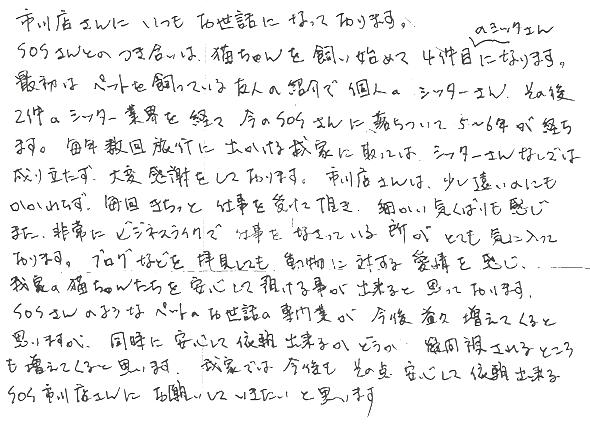 市川店さんに いつも お世話に なって おります。
のシッターさん
SOSさんとの つき合いは、猫ちゃんを 飼い始めて 4件目になります。
最初は ペットを飼っている 友人の紹介で 個人の シッターさん、その後
2件の シッター業界を 経て 今のSOSさんに 落ちついて 5〜6年が 経ち
ます。毎年数回旅行に 出かける 我家に 取っては シッターさんなしでは
成り立たず、大変 感謝を しております。市川店さんは、少し遠いのにも
かかわらず、毎回 きちっと 仕事を 受けて 頂き、細かい 気くばりも 感じ
また、非常に ビジネスライクで 仕事を なさっている 所が とても 気に入って
おります。ブログなどを 拝見しても 動物に 対する 愛情を 感じ、
我家の 猫ちゃんたちを 安心して 預ける事が 出来ると 思っております。
SOSさんのような ペットのお世話の 専門業が 今後 益々 増えてくると
思いますが、同時に 安心して 依頼 出来るか どうか 疑問視されるところ
も 増えてくると 思います。我家では 今後も その点 安心して 依頼 出来る
SOS市川店さんに お願いして いきたい と 思います